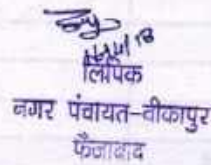 लिपिक
नगर पंचायत-बीकापुर
फैजाबाद